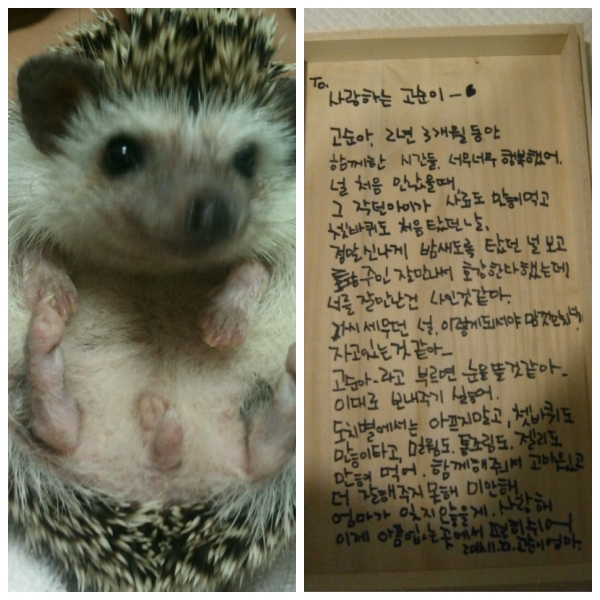 To.
사랑하는 고순이 -
고순아, 2년 3개월동안
함께한 시간들. 너무너무 행복했어.
널 처음 만났을때,
그 작던아이가 사료도 만히먹고
쳇바퀴도 처음 탔던날,
정말신나게 밤새도록 탔던 널 보고
주인 잘만나서 호강한다했는데
너를 잘만난건 나인것같다.
가시세우던 널. 이렇게되서야 만
자고있는것 같아-
고순아-라고 부르면 눈을뜰것같아-
이대로 보내주기 싫어.
도치별에서는 아프지말고, 쳇바퀴도
만히타고, 밀웜도. 젤리도
만히 먹어. 함께해줘서 고마웠고
더 잘해주지 못해 미안해
엄마가 잊지않을게. 사랑해
이제 아픔없는곳에서 쉬어
고순이 엄마.